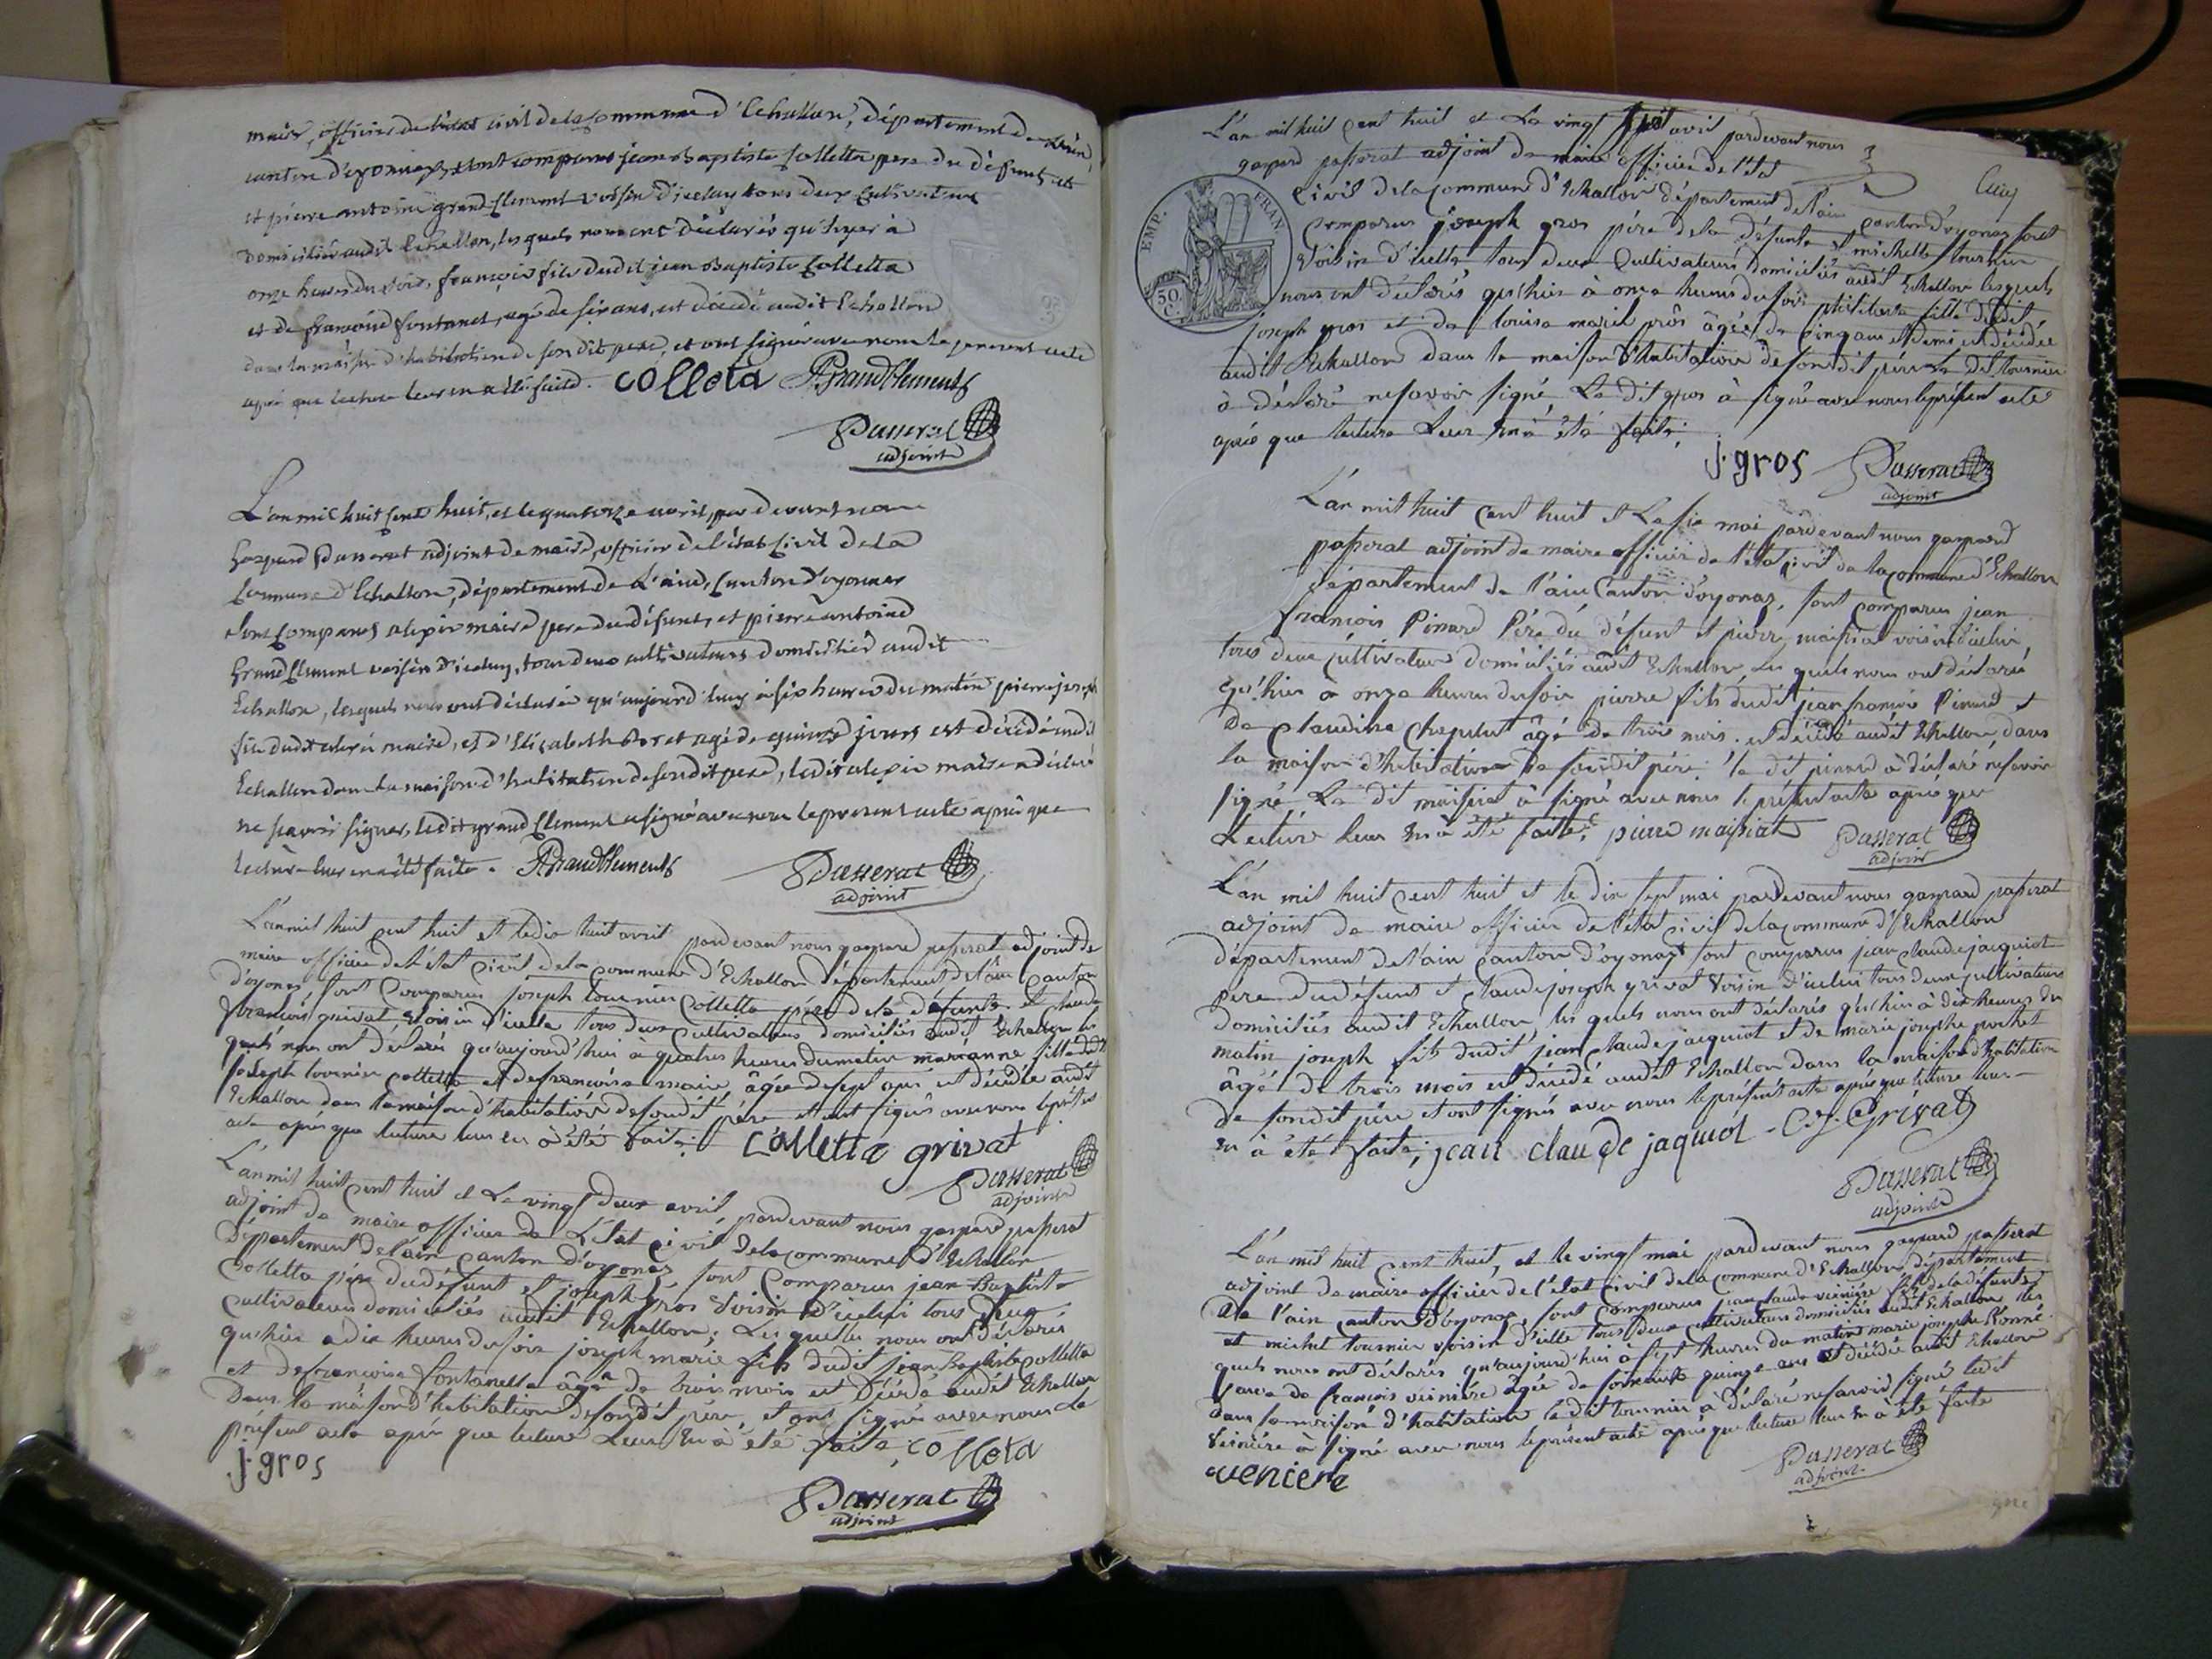 maire, officier de l'état civil de la commune d'Echallon, département de l'ain
canton d'oyonnax sont comparus jean Baptiste Colletta pere du défunt
et pierre antoine grand Clement voisin d'iceluy tous deux cultivateurs
domiciliés audit Echallon, les quels nous ont déclarés qu'hyer à
onze heures du soir, françois fils dudit jean Baptiste Colletta
et de françoise fontanet, agé de six ans, est décédé audit Echallon
dans la maison d'habitation de son dit pere, et ont signé avec nous le present acte
après que lecture leur en a été faite. colleta PA Grandclement
Passerat
adjoint
L'an mil huit cent huit, et le quatorze avril, par devant nous
Gaspard Passerat adjoint de maire, officier de l'état civil de la
commune d'Echallon, département de L'ain, Canton d'oyonnax
sont comparus alexis maire pere du défunt, et pierre antoine
Grand Clement voisin d'iceluy, tous deux cultivateurs domiciliés audit
Echallon, lesquels nous ont déclarés qu'aujourd'huy à six heures du matin pierre joseph
fils dudit alexis maire, et d'Elizabeth agé de quinze jours est décédé audit
Echallon dans la maison d'habitation de son dit pere, ledit alexis maire a déclaré
ne savoir signer, ledit grand Clement a signé avec nous le present acte après que
lecture leur en a été faite. PA Grandclement Passerat
adjoint
L'an mil huit cent huit et le dix huit avril pardevant nous gaspard passerat adjoint de
maire officier de l'état civil de la commune d'Echallon département de l'ain canton
d'oyonax sont comparus joseph tournier Colletta père de la défunte et claude
françois grivat voisin d'icelle tous deux cultivateurs domiciliés audit Echallon les
quels nous ont déclarés qu'aujourd'hui à quatres heures du matin marianne fille dudit
joseph tournier colletta et de françoise maire âgée de sept ans est décédée audit
Echallon dans la maison d'habitation de son dit père et ont signés avec nous le présent
acte après que lecture leur en à été faite; Colletta grivat
Passerat
adjoint
L'an mil huit cent huit et Le vingt deux avril pardevant nous gaspard passerat
adjoint de maire officier de L'état civil de la commune d'Echallon
Département de l'ain canton d'oyonax sont comparus jean Baptiste
Colletta père du défunt et joseph gros voisin d'icelui tous deux
cultivateurs domiciliés audit Echallon; Les quels nous ont déclarés
qu'hier à dix heures du soir joseph marie fils dudit jean Baptiste colletta
et de françoise fontanelle âgé de trois mois est décédé audit Echallon
Dans la maison d'habitation de son dit père, et ont signé avec nous le
présent acte après que lecture Leur En à été faite, colleta
j. gros
Passerat
adjoint
L'an mil huit cent huit et Le vingt avril pardevant nous
gaspard passerat adjoint de maire officier de l'état
civil de la commune d'Echallon département de l'ain canton d'oyonax sont
EMP. FRAN.
50 C.
comparus joseph gros père de la défunte et michelle tournier
voisin d'icelle tous deux Cultivateurs domiciliés audit Echallon lesquels
nous ont déclarés qu'hier à onze heures du soir fille dudit
joseph gros et de louise marie gros âgée de cinq ans et demi est décédée
audit Echallon dans la maison d'habitation de son dit père Le dit tournier
à déclaré ne savoir signé Le dit gros à signé avec nous le présent acte
après que lecture Leur En à été faite;
j. gros Passerat
adjoint
L'an mil huit cent huit et Le six mai pardevant nous gaspard
passerat adjoint de maire officier de l'état civil de la commune d'Echallon
département de l'ain Canton d'oyonax, sont comparus jean
françois Pinard Père du défunt et pierre maissiat voisin d'icelui
tous deux cultivateurs domiciliés audit Echallon, Les quels nous ont déclaré
qu'hier à onze heures du soir pierre fils dudit jean françois Pinard et
De claudine âgé de trois mois est décédé audit Echallon dans
la maison d'habitation de son dit père le dit pinard à déclaré ne savoir
signé Le dit maissiat à signé avec nous le présent acte après que
Lecture Leur En à été faite; pierre maissiat Passerat
adjoint
L'an mil huit cent huit et le dix sept mai pardevant nous gaspard passerat
adjoint de maire officier de l'état civil de la commune d'Echallon
département de l'ain canton d'oyonax sont comparus jean claude jacquiot
pere du défunt et claude joseph grivat voisin d'icelui tous deux cultivateurs
domiciliés audit Echallon, les quels nous ont déclarés qu'hier à dix heures du
matin joseph fils dudit jean claude jacquiot et de marie josephe pochet
âgé de trois mois est décédé audit Echallon dans la maison d'habitation
de son dit père et ont signés avec nous le présent acte après que lecture leur
en à été faite; jean claude jaquiot - C. J. Grivat
Passerat
adjoint
L'an mil huit cent huit, et le vingt mai pardevant nous gaspard passerat
adjoint de maire officier de l'état civil de la commune d'Echallon département
de l'ain canton d'oyonax, sont comparus jean claude vernière fils de la défunte
et michel tournier voisin d'icelle tous deux cultivateurs domiciliés audit Echallon les
quels nous ont déclarés qu'aujourd'hui à sept heures du matin marie josephe
veuve de françois vernière âgée de soixante quinze ans est décédée audit Echallon
dans la maison d'habitation le dit tournier à déclaré ne savoir signé ledit
vernière à signé avec nous le présent acte après que lecture leur En à été faite
veniere Passerat
adjoint